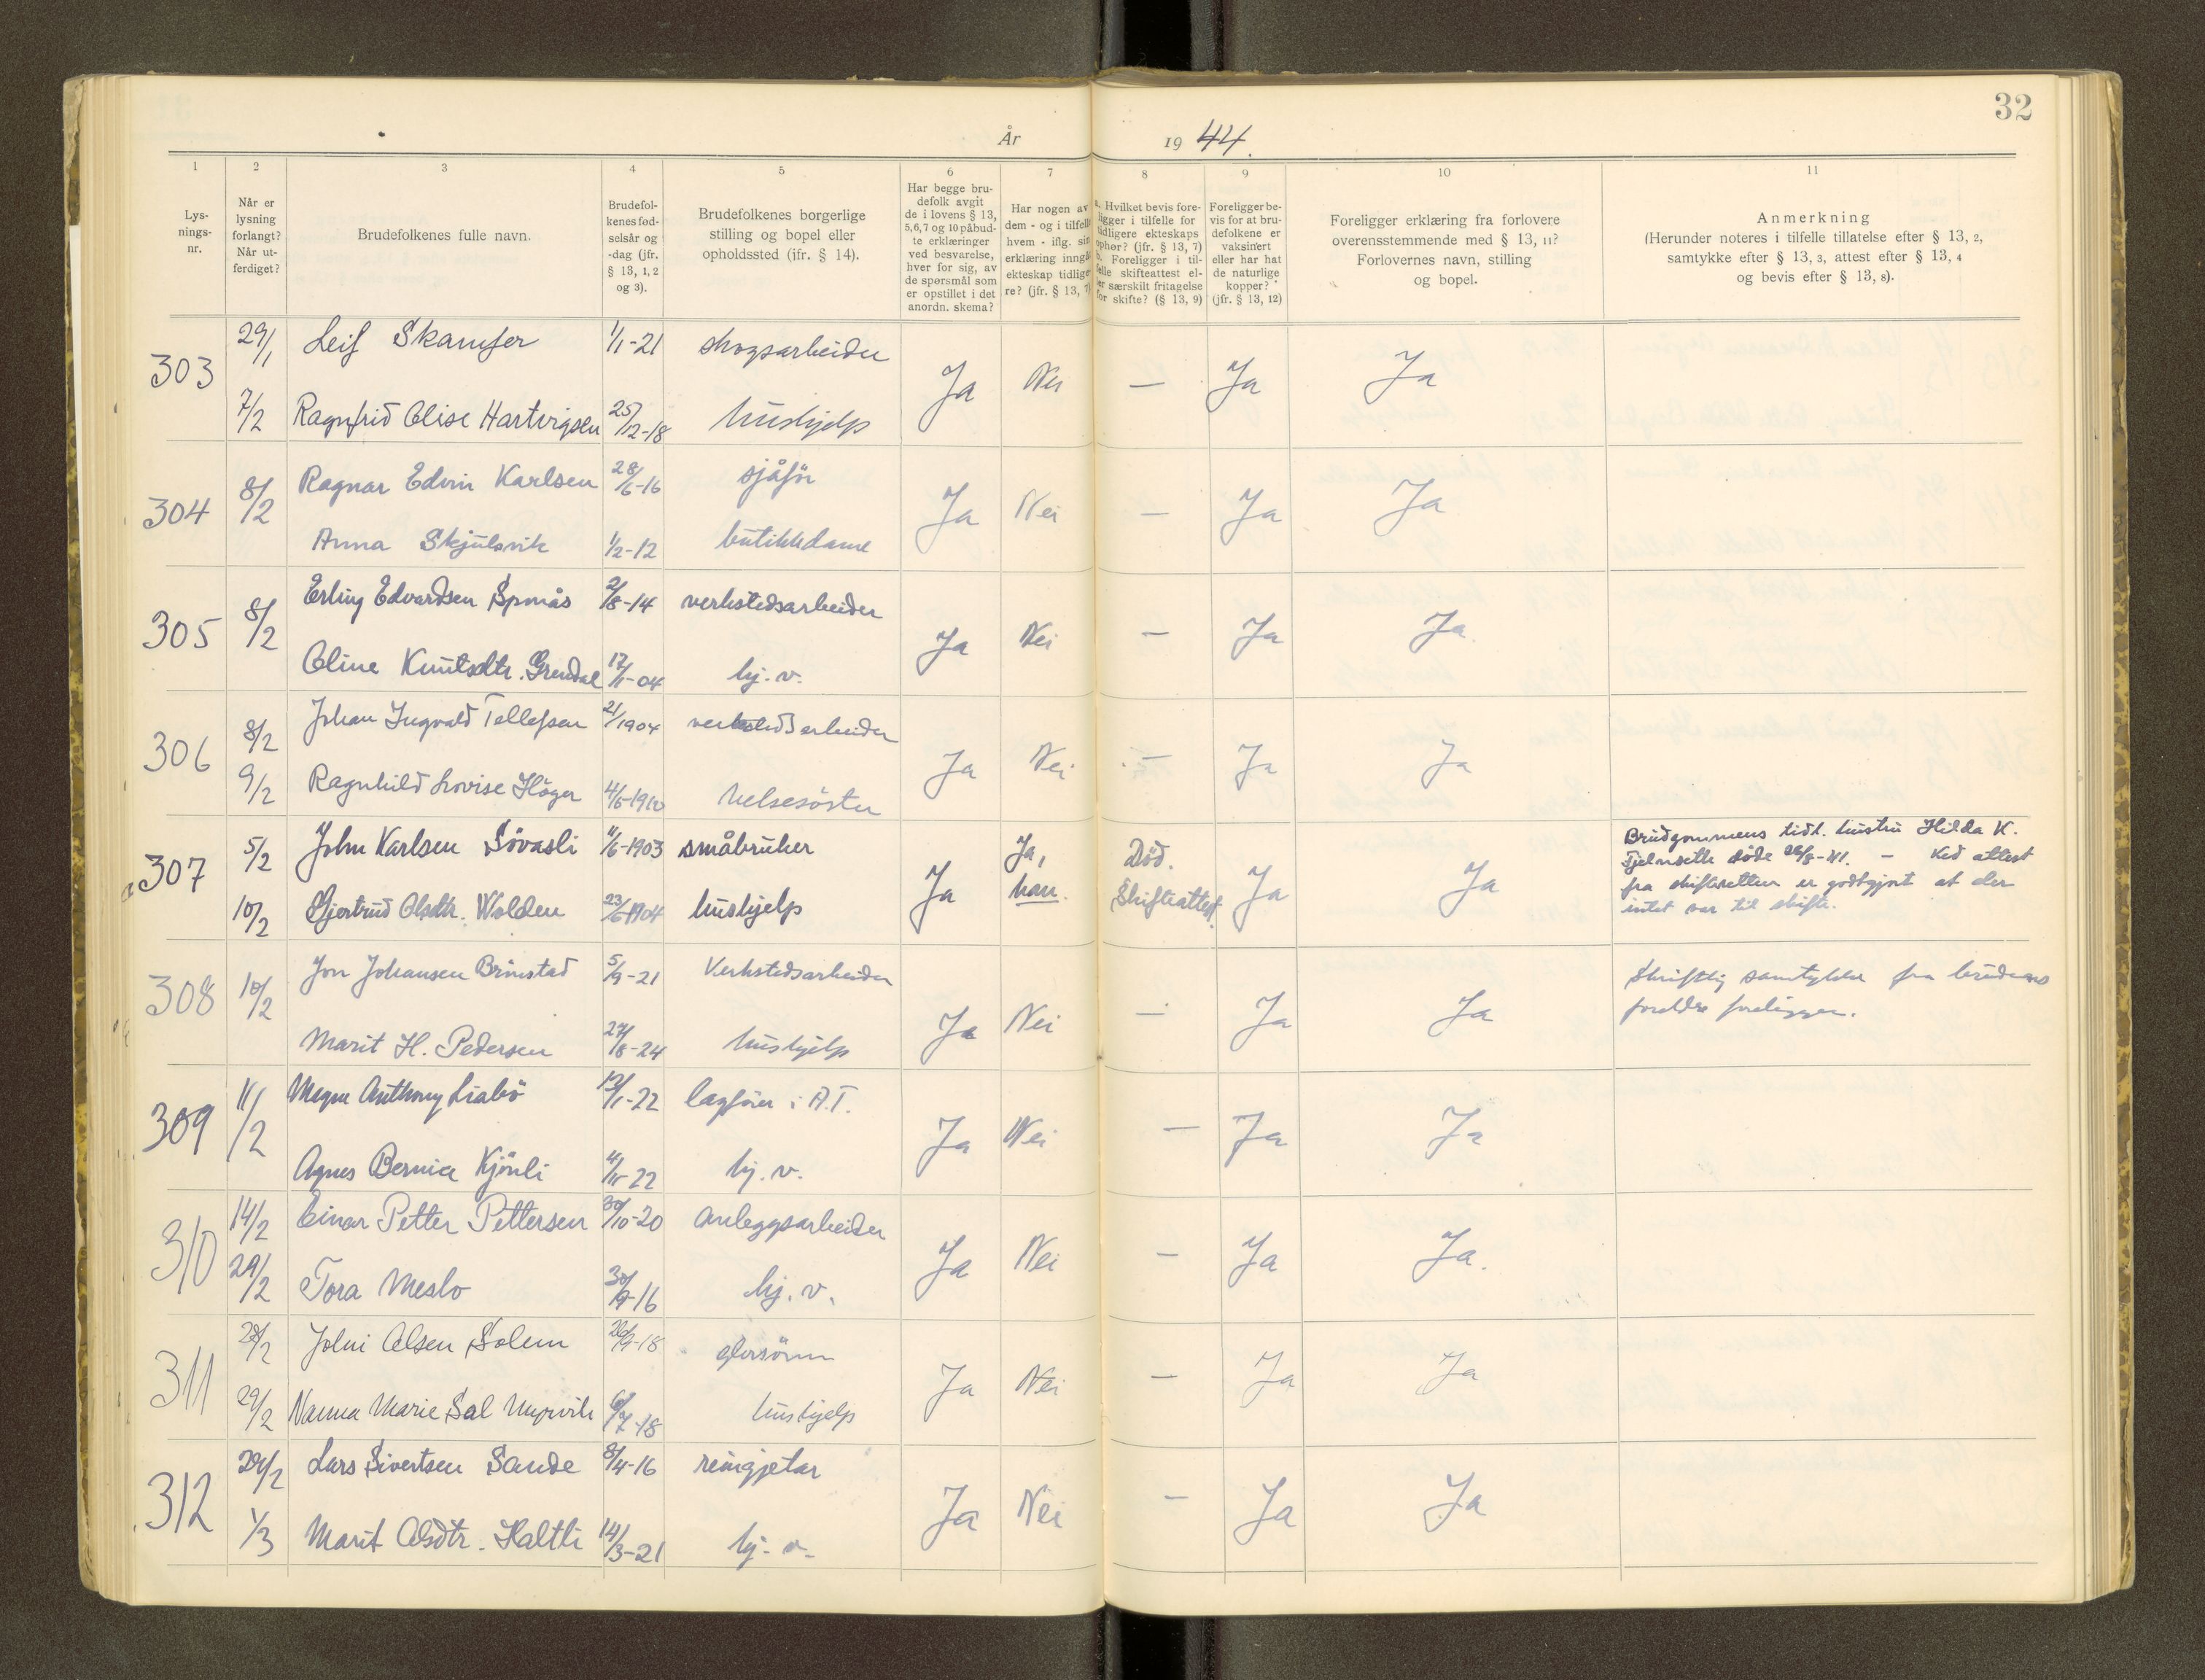 32
År 1944.
1 2 3 4 5 6 7 8 9 10 11
Lys-
nings-
nr.
Når er
lysning
forlangt?
Når ut-
ferdiget?
Brudefolkenes fulle navn.
Brudefol-
kenes fød-
selsår og
-dag (jfr.
§ 13, 1, 2
og 3).
Brudefolkenes borgerlige
stilling og bopel eller
opholdssted (ifr. § 14).
Har begge bru-
defolk avgit
de i lovens § 13,
5,6,7 og 10 påbud-
te erklæringer
ved besvarelse,
hver for sig, av
de spørsmål som
er opstillet i det
anordn. skema?
Har nogen av
dem - og i tilfelle
hvem - iflg. sin
erklæring inngå
ekteskap tidlige-
re? (jfr. § 13, 7)
a. Hvilket bevis fore-
ligger i tilfelle for
tidligere ekteskaps
ophør? (jfr. § 13, 7)
b. Foreligger i til-
felle skifteattest el-
ler særskilt fritagelse
for skifte? (§ 13, 9)
Foreligger be-
vis for at bru-
defolkene er
vaksinert
eller har hat
de naturlige
kopper?
(jfr. § 13, 12)
Foreligger erklæring fra forlovere
overensstemmende med § 13, 11?
Forlovernes navn, stilling
og bopel.
Anmerkning
(Herunder noteres i tilfelle tillatelse efter § 13, 2,
samtykke efter § 13, 3, attest efter § 13, 4
og bevis efter § 13, 8).
303 29/1 Leif Skamfer 1/1-21 skogsarbeider Ja Nei — Ja Ja
7/2 Ragnfrid Elise Hartvigsen 25/12-18 hushjelp
304 8/2 Ragnar Edvin Karlsen 28/6-16 sjåför Ja Nei — Ja Ja
Anna Skjulsvik 1/2-12 butikkdame
305 8/2 Erling Edvardsen 2/8-14 verkstedsarbeider Ja Nei — Ja Ja
Oline Knutsdtr. Grendal 17/1-04 hj. v.
306 8/2 Johan Ingvald Tellefsen 21/1904 verkstedsarbeider Ja Nei — Ja Ja
9/2 Ragnhild Lovise Höger 4/6-1910 helsesöster
307 5/2 John Karlsen Sövasli 11/6-1903 småbruker Ja Ja, han. Död. Skifteattest. Ja Ja
10/2 Gjertrud Olsdtr. Wolden 23/6-1904 hushjelp
Brudgommens tidl. hustru Hilda K.
döde 26/8-41. — Ved attest
fra skifteretten er godtgjort at der
intet var til skifte.
308 10/2 Jon Johansen Brinstad 5/9-21 Verkstedsarbeider Ja Nei — Ja Ja
Marit H. Pedersen 27/8-24 hushjelp
Skriftlig samtykke fra brudens
foreldre foreligger.
309 11/2 Magne Anthony Liabö 12/1-22 lagförer i A.T. Ja Nei — Ja Ja
Agnes Bernia Kjönli 4/11-22 hj. v.
310 14/2 Einar Petter Pettersen 30/10-20 anleggsarbeider Ja Nei — Ja Ja.
29/2 Tora Meslo 30/9-16 hj. v.
311 28/2 Johni Olsen Solem 26/9-18 Ja Nei — Ja Ja
29/2 Nanna Marie Sal Myrvik 6/7-18 hushjelp
312 29/2 Lars Sivertsen Sande 8/4-16 reingjetar Ja Nei — Ja Ja
1/3 Marit Olsdtr. Haltli 14/3-21 hj. v.